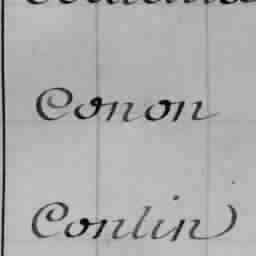 Conon
Conlin